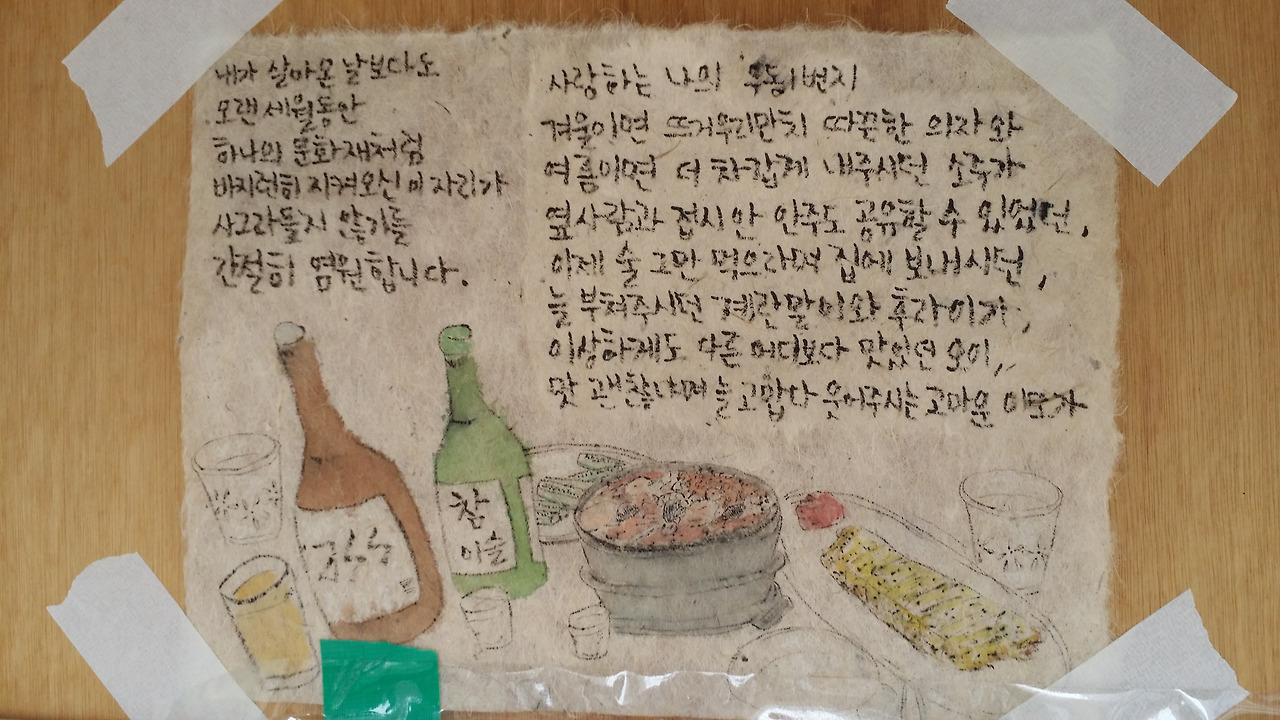 내가 살아온 날보다도
오랜 세월동안
하나의 문화재처럼
바지런히 지켜오신 이 자리가
사그라들지 않기를
간절히 염원합니다.
사랑하는 나의 우동1번지
겨울이면 뜨거우리만치 따끈한 의자와
여름이면 더 차갑게 내주시던 소주가
옆사람과 접시 안 안주도 공유할 수 있었던,
이제 술 그만 먹으라며 집에 보내시던,
늘 부쳐주시던 계란말이와 후라이가,
이상하게도 다른 어디보다 맛있던 오이,,
맛 괜찮냐며 늘 고맙다 웃어주시는 고마운 이모가
참
이슬